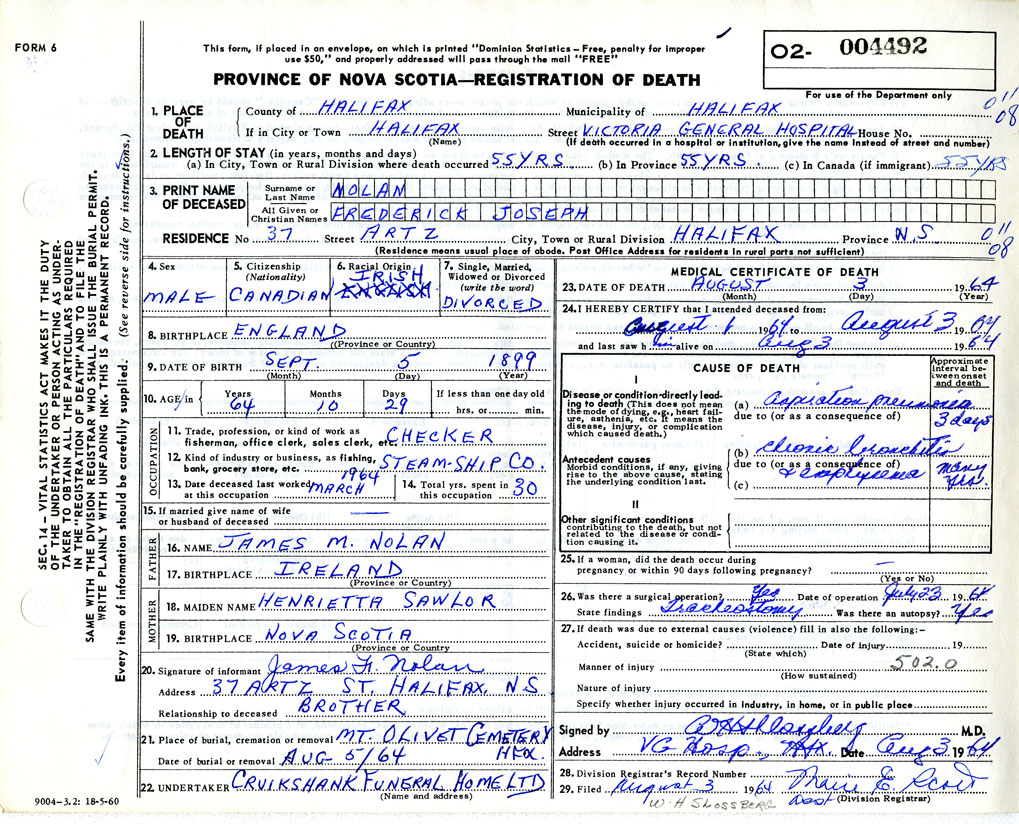 FORM 6
This form, if placed in an envelope, on which is printed "Dominion Statistics – Free, penalty for improper
use $50," and properly addressed will pass through the mail "FREE"
PROVINCE OF NOVA SCOTIA—REGISTRATION OF DEATH
O2- 004492
For use of the Department only
SEC. 14 – VITAL STATISTICS ACT MAKES IT THE DUTY
OF THE UNDERTAKER OR PERSON ACTING AS UNDER-
TAKER TO OBTAIN ALL THE PARTICULARS REQUIRED
IN THE "REGISTRATION OF DEATH" AND TO FILE THE
SAME WITH THE DIVISION REGISTRAR WHO SHALL ISSUE THE BURIAL PERMIT.
WRITE PLAINLY WITH UNFADING INK. THIS IS A PERMANENT RECORD.
Every item of information should be carefully supplied. (See reverse side for instructions.)
1. PLACE OF DEATH County of HALIFAX Municipality of HALIFAX 011
08
If in City or Town HALIFAX Street VICTORIA GENERAL HOSPITAL House No.
(Name) (If death occurred in a hospital or institution, give the name instead of street and number)
2. LENGTH OF STAY (in years, months and days)
(a) In City, Town or Rural Division where death occurred 55 YRS (b) In Province 55 YRS. (c) In Canada (if immigrant) 55 YRS
3. PRINT NAME OF DECEASED
Surname or Last Name NOLAN
All Given or Christian Names FREDERICK JOSEPH
RESIDENCE No 37 Street ARTZ City, Town or Rural Division HALIFAX Province N.S 011
08
(Residence means usual place of abode. Post Office Address for residents in rural parts not sufficient)
4. Sex MALE
5. Citizenship (Nationality) CANADIAN
6. Racial Origin IRISH
7. Single, Married, Widowed or Divorced (write the word) DIVORCED
8. BIRTHPLACE ENGLAND
(Province or Country)
9. DATE OF BIRTH SEPT. 5 1899
(Month) (Day) (Year)
10. AGE in Years 64 Months 10 Days 29 If less than one day old
hrs. or min.
OCCUPATION
11. Trade, profession, or kind of work as
fisherman, office clerk, sales clerk, etc. CHECKER
12. Kind of industry or business, as fishing,
bank, grocery store, etc. STEAM-SHIP CO.
13. Date deceased last worked at this occupation 1964 MARCH
14. Total yrs. spent in this occupation 30
15. If married give name of wife
or husband of deceased —
FATHER
16. NAME JAMES M. NOLAN
17. BIRTHPLACE IRELAND
(Province or Country)
MOTHER
18. MAIDEN NAME HENRIETTA SAWLOR
19. BIRTHPLACE NOVA SCOTIA
(Province or Country)
20. Signature of informant James F. Nolan
Address 37 ARTZ ST. HALIFAX, N.S
Relationship to deceased BROTHER
21. Place of burial, cremation or removal MT. OLIVET CEMETERY
HFX.
Date of burial or removal AUG 5/64
22. UNDERTAKER CRUIKSHANK FUNERAL HOME LTD
(Name and address)
9004-3.2: 18-5-60
MEDICAL CERTIFICATE OF DEATH
23. DATE OF DEATH AUGUST 3 1964
(Month) (Day) (Year)
24. I HEREBY CERTIFY that I attended deceased from:
August 1 1964 to August 3 1964
and last saw him alive on Aug 3 1964
CAUSE OF DEATH
Approximate interval between onset and death
I
Disease or condition directly lead-
ing to death (This does not mean
the mode of dying, e.g., heart fail-
ure, asthenia, etc. It means the
disease, injury, or complication
which caused death.)
(a) Aspiration pneumonia 3 days
due to (or as a consequence of)
Antecedent causes
Morbid conditions, if any, giving
rise to the above cause, stating
the underlying condition last.
(b) Chronic bronchitis
due to (or as a consequence of)
& emphysema many yrs.
(c)
II
Other significant conditions
contributing to the death, but not
related to the disease or condi-
tion causing it.
25. If a woman, did the death occur during
pregnancy or within 90 days following pregnancy? —
(Yes or No)
26. Was there a surgical operation? Yes Date of operation July 23 1964
State findings Tracheostomy Was there an autopsy? Yes
27. If death was due to external causes (violence) fill in also the following:–
Accident, suicide or homicide? Date of injury 19
(State which)
Manner of injury 502.0
(How sustained)
Nature of injury
Specify whether injury occurred in industry, in home, or in public place
Signed by W H Slossberg M.D.
Address VG Hosp., Hfx. Date Aug 3 1964
28. Division Registrar's Record Number
29. Filed August 3 1964 Marie E. Scott
W. H SLOSSBERG Dept (Division Registrar)